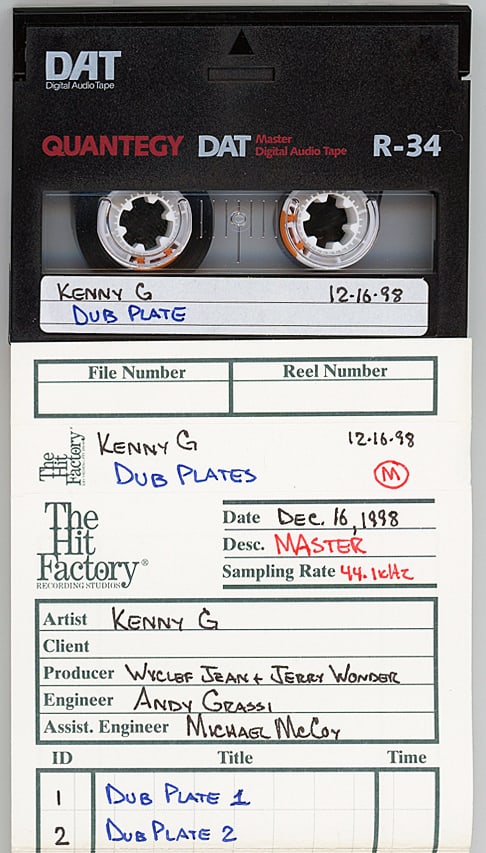 DAT
Digital Audio Tape
QUANTEGY DAT Master Digital Audio Tape R-34
KENNY G 12-16-98
DUB PLATE
File Number Reel Number
The Hit Factory KENNY G 12-16-98
DUB PLATES M
The
Hit
Factory®
RECORDING STUDIOS
Date DEC. 16, 1998
Desc. MASTER
Sampling Rate 44.1kHz
Artist KENNY G
Client
Producer WYCLEF JEAN + JERRY WONDER
Engineer ANDY GRASSI
Assist. Engineer MICHAEL McCOY
ID Title Time
1 DUB PLATE 1
2 DUB PLATE 2